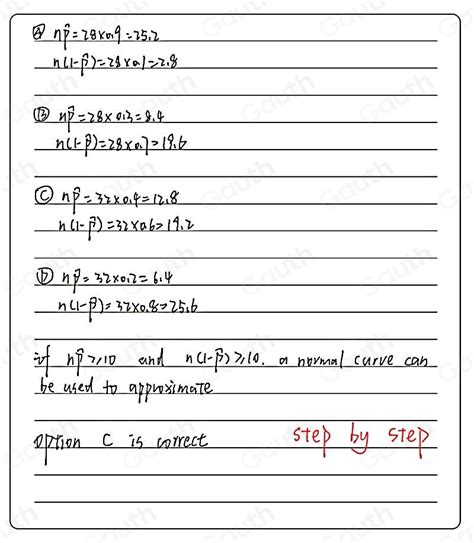 Ⓐ np̂=28×0.9=25.2
n(1-p̂)=28×0.1=2.8
Ⓑ np̂=28×0.3=8.4
n(1-p̂)=28×0.7=19.6
Ⓒ np̂=32×0.4=12.8
n(1-p̂)=32×0.6=19.2
Ⓓ np̂=32×0.2=6.4
n(1-p̂)=32×0.8=25.6
if np̂≥10 and n(1-p̂)≥10. a normal curve can
be used to approximate
option C is correct step by step